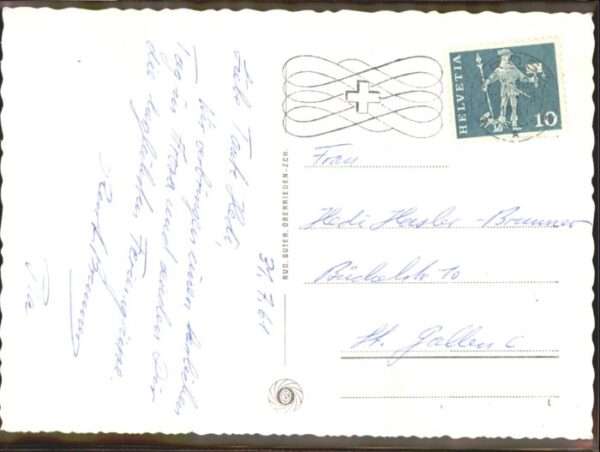 Liebe Tante Hedi,
Wir verbringen einen herrlichen
Tag in Arosa und senden Dir
die herzlichsten Feriengrüsse.
Pia
31.7.61
RUD. SUTER, OBERRIEDEN-ZCH.
HELVETIA
10
Frau
Hedi Hasler-Brunner
Büchelstr. 10
St. Gallen C